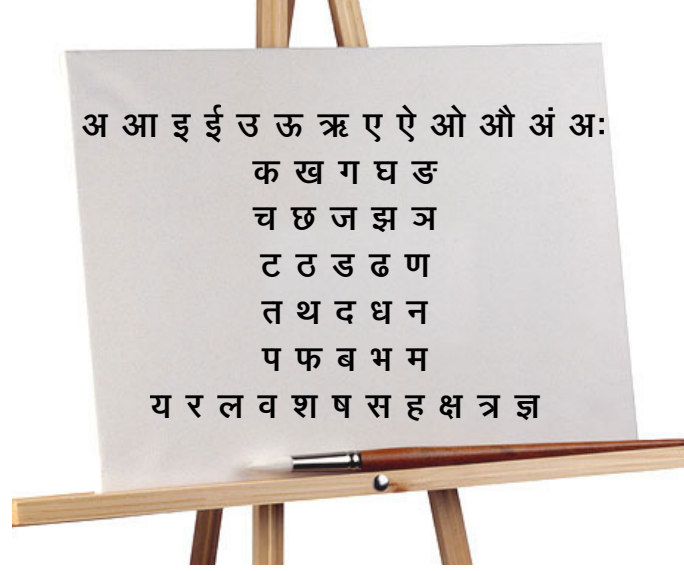 अ आ इ ई उ ऊ ऋ ए ऐ ओ औ अं अः
क ख ग घ ङ
च छ ज झ ञ
ट ठ ड ढ ण
त थ द ध न
प फ ब भ म
य र ल व श ष स ह क्ष त्र ज्ञ